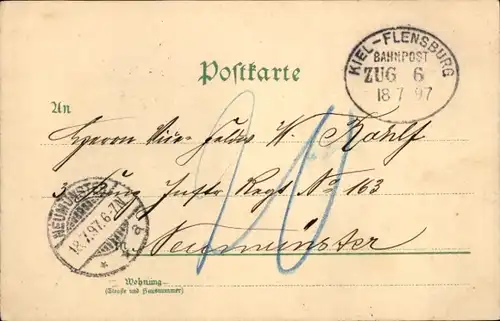 KIEL-FLENSBURG
BAHNPOST
ZUG 6
18 7 97
Postkarte
An
Herrn Vice Feldw. W. Rohlf
3. Komp Inftr Regt No 163
Neumünster
NEUMÜNSTER
18.7.97.6-7N.
20
Wohnung
(Straße und Hausnummer)